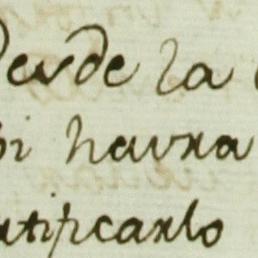 desde la
si havra
ratificarlo